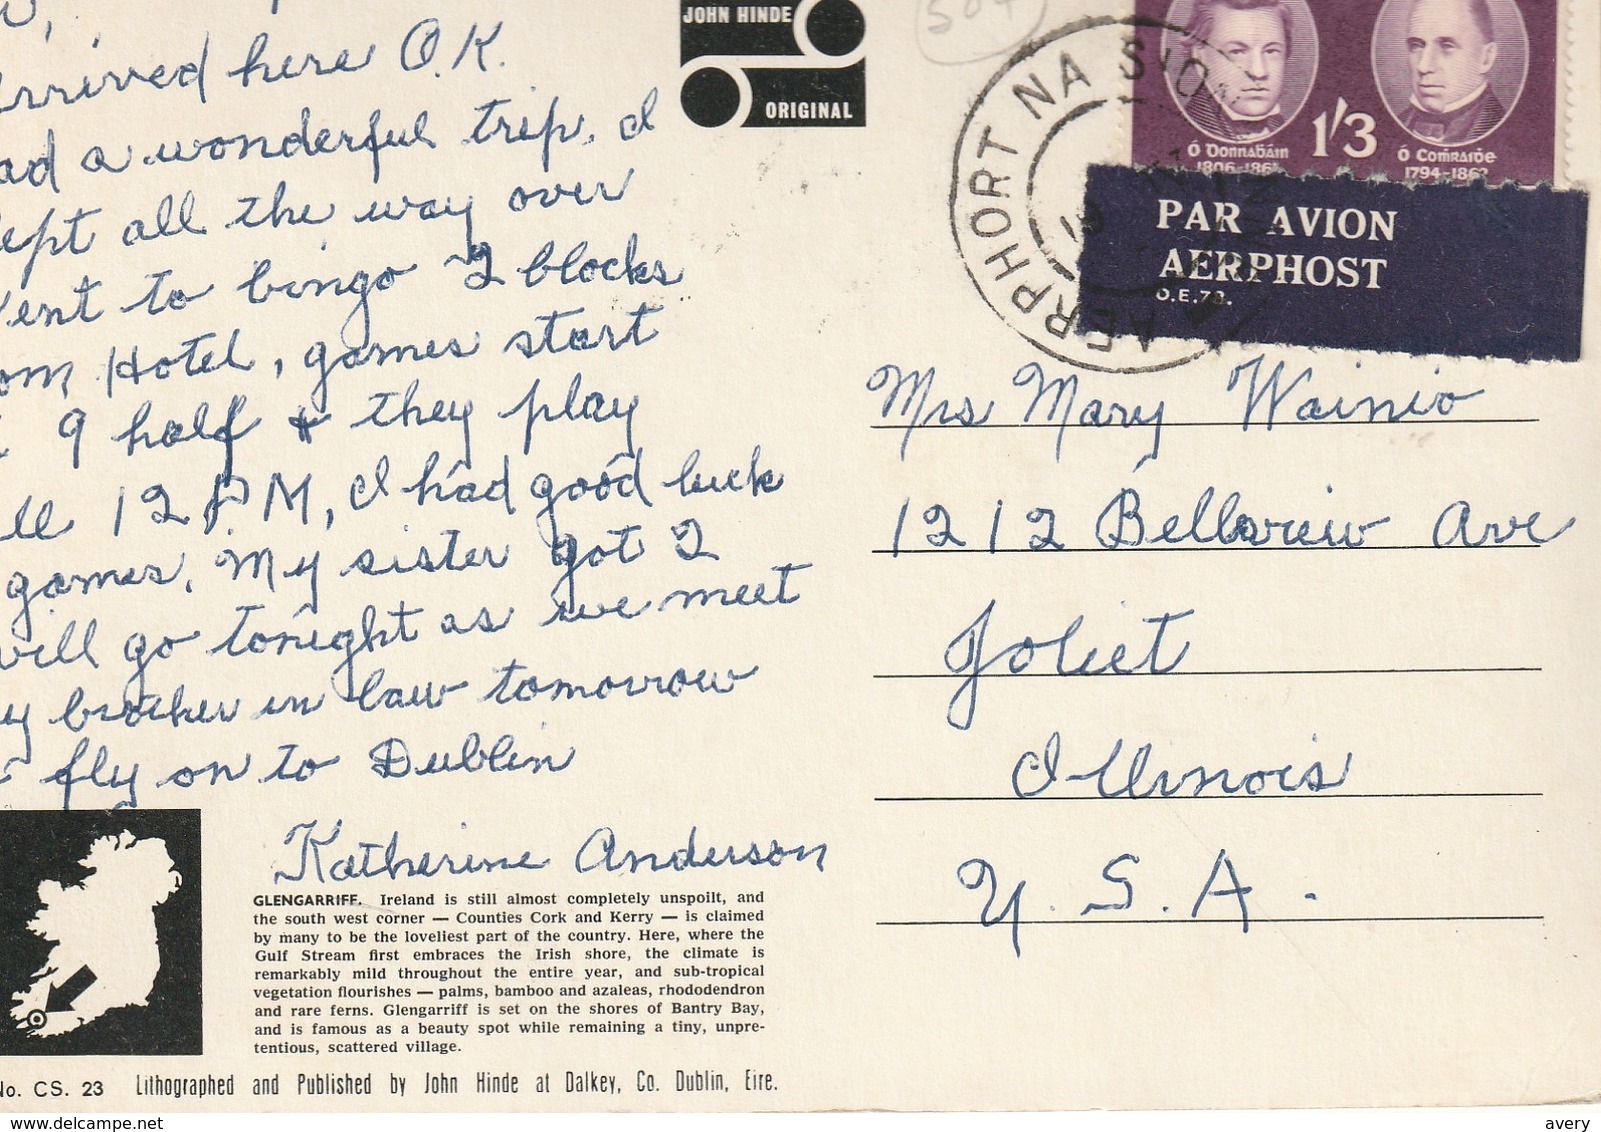 arrived here O.K.
had a wonderful trip, I
slept all the way over
Went to bingo 2 blocks
from Hotel, games start
9 half & they play
till 12 P.M, I had good luck
games. My sister got 2
will go tonight as we meet
my brother in law tomorrow
fly on to Dublin
Katherine Anderson
GLENGARRIFF. Ireland is still almost completely unspoilt, and
the south west corner — Counties Cork and Kerry — is claimed
by many to be the loveliest part of the country. Here, where the
Gulf Stream first embraces the Irish shore, the climate is
remarkably mild throughout the entire year, and sub-tropical
vegetation flourishes — palms, bamboo and azaleas, rhododendron
and rare ferns. Glengarriff is set on the shores of Bantry Bay,
and is famous as a beauty spot while remaining a tiny, unpre-
tentious, scattered village.
No. CS. 23 Lithographed and Published by John Hinde at Dalkey, Co. Dublin, Eire.
JOHN HINDE
ORIGINAL
504
AERPHORT NA SIONNA
Ó Donnabáin
1806-1861
1/3
Ó Comraide
1794-1862
PAR AVION
AERPHOST
O.E.78.
Mrs Mary Wainio
1212 Bellview Ave
Joliet
Illinois
U.S.A.
www.delcampe.net
avery